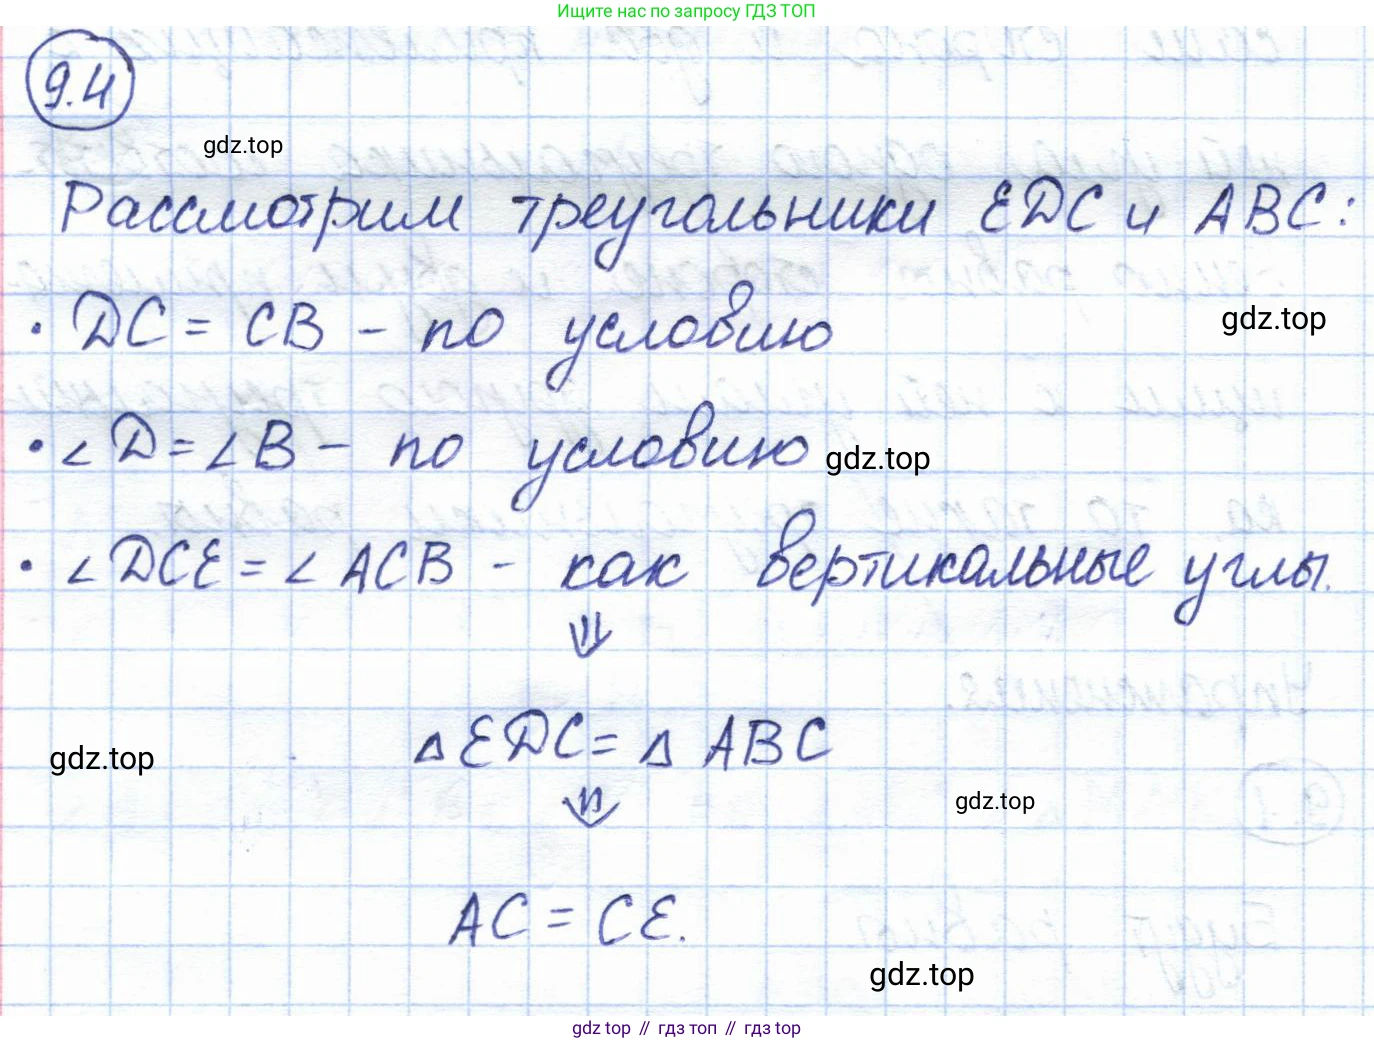 Ищите нас по запросу ГДЗ ТОП
9.4
gdz.top
Рассмотрим треугольники EDC и ABC:
• DC = CB – по условию
gdz.top
• ∠D = ∠B – по условию
gdz.top
• ∠DCE = ∠ACB – как вертикальные углы.
⇓
△EDC = △ABC
gdz.top
⇓
gdz.top
AC = CE.
gdz.top
gdz top // гдз топ // гдз top